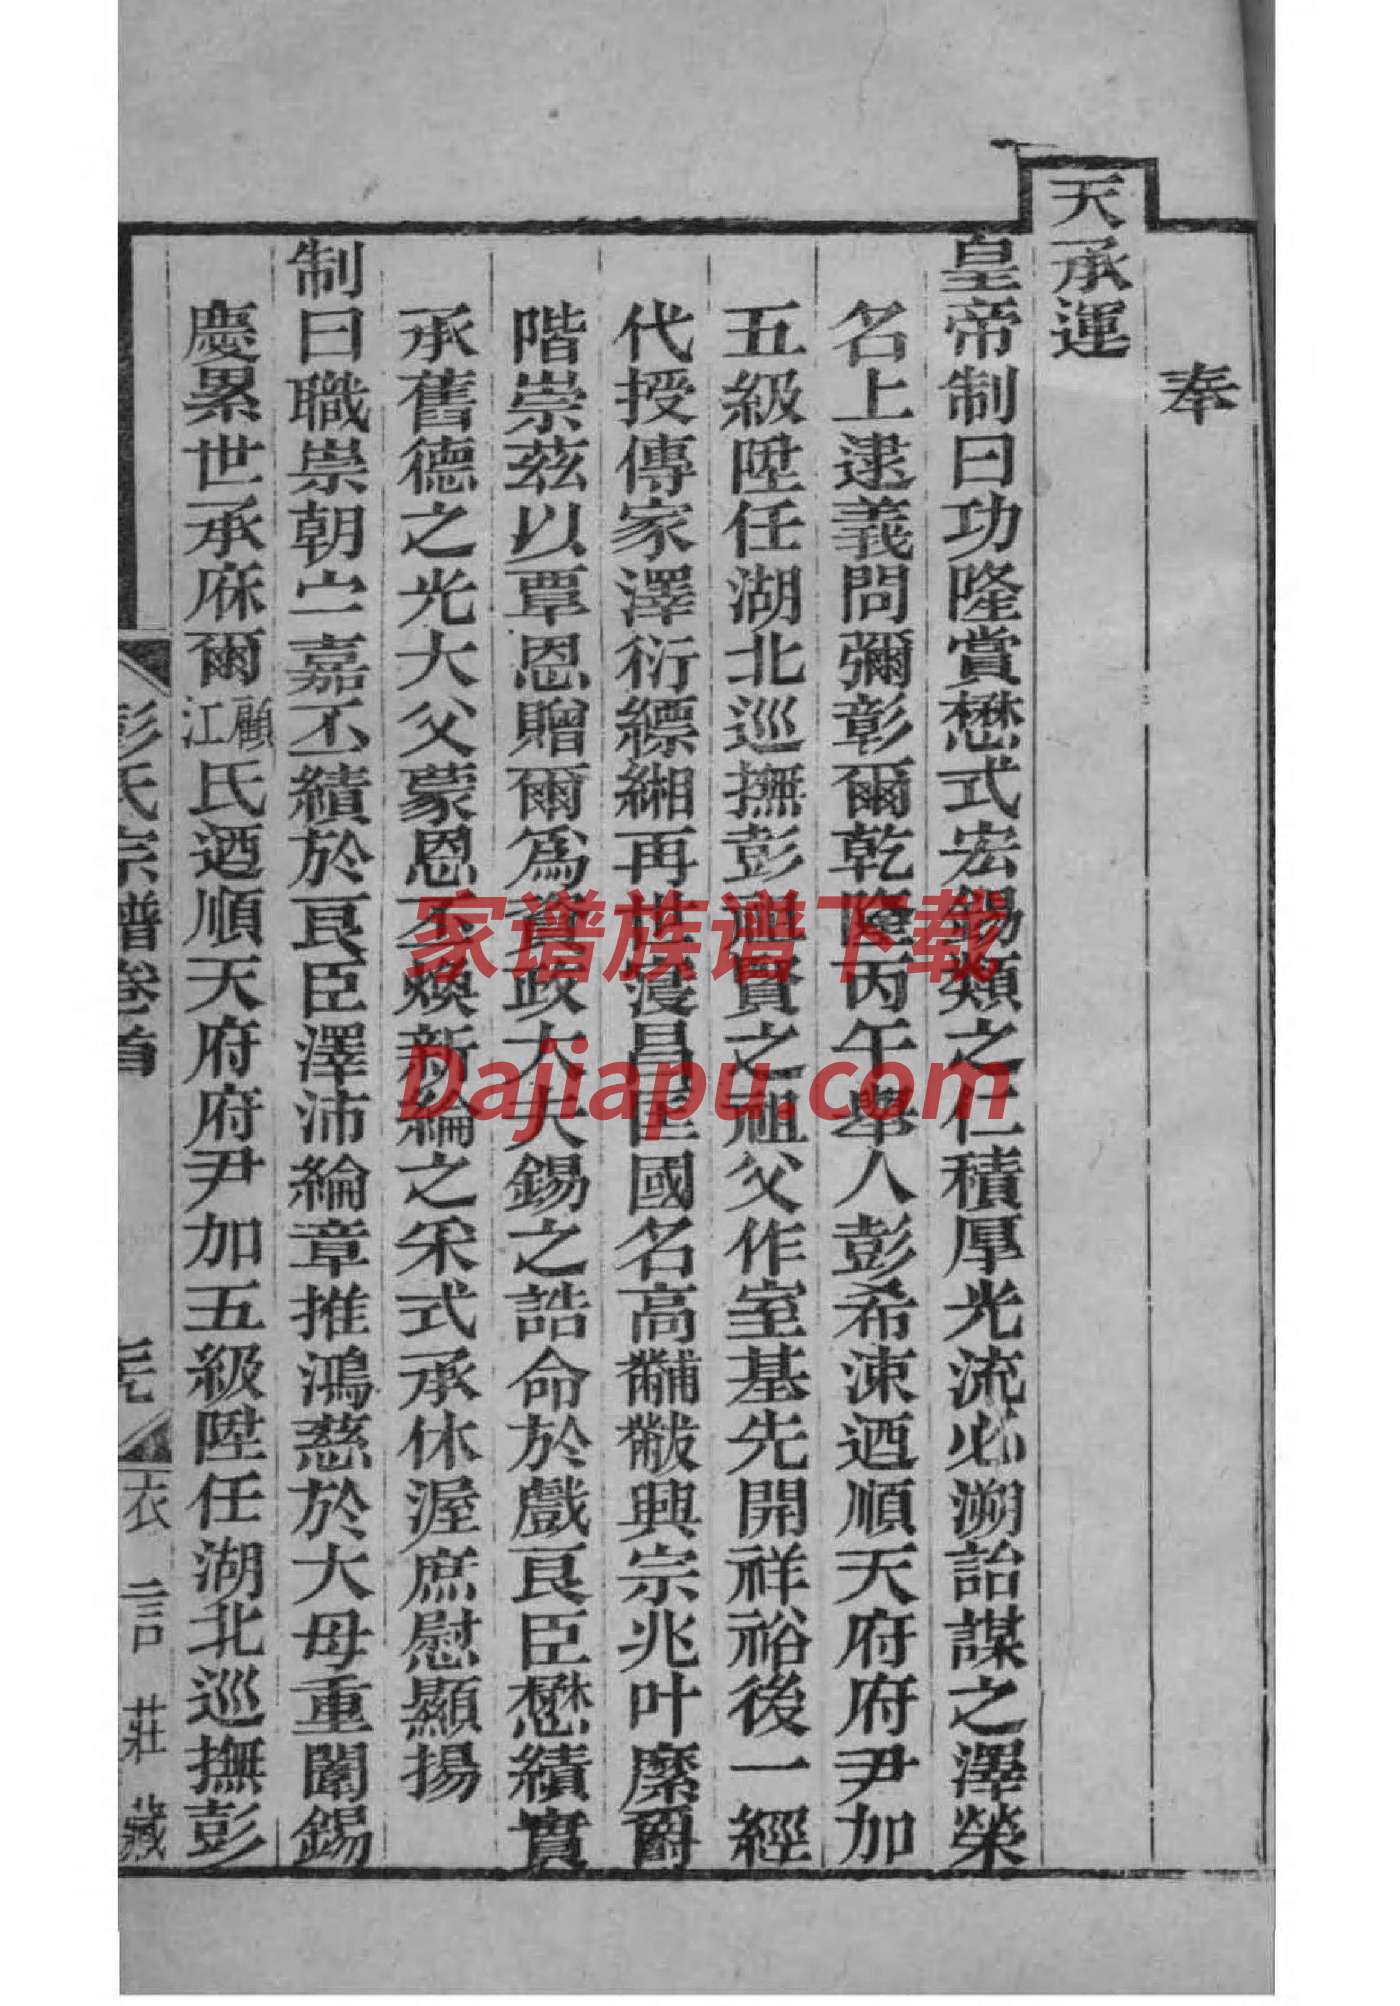 奉
天承運
皇帝制曰功隆賞懋式宏錫類之仁積厚光流必溯詒謀之澤榮
名上逮義問彌彰爾乾隆丙午舉人彭希涑迺順天府府尹加
五級陞任湖北巡撫彭祖賢之祖父作室基先開祥裕後一經
代授傳家澤衍縹緗再世寖昌匡國名高黼黻興宗兆叶縻爵
階崇茲以覃恩贈爾為資政大夫錫之誥命於戲良臣懋績實
承舊德之光大父蒙恩丕煥新綸之采式承休渥庶慰顯揚
制曰職崇朝宁嘉丕績於良臣澤沛綸章推鴻慈於大母重闈錫
慶累世承庥爾顧江氏迺順天府府尹加五級陞任湖北巡撫彭
彭氏宗譜卷首
衣言莊藏
家谱族谱下载
Dajiapu.com